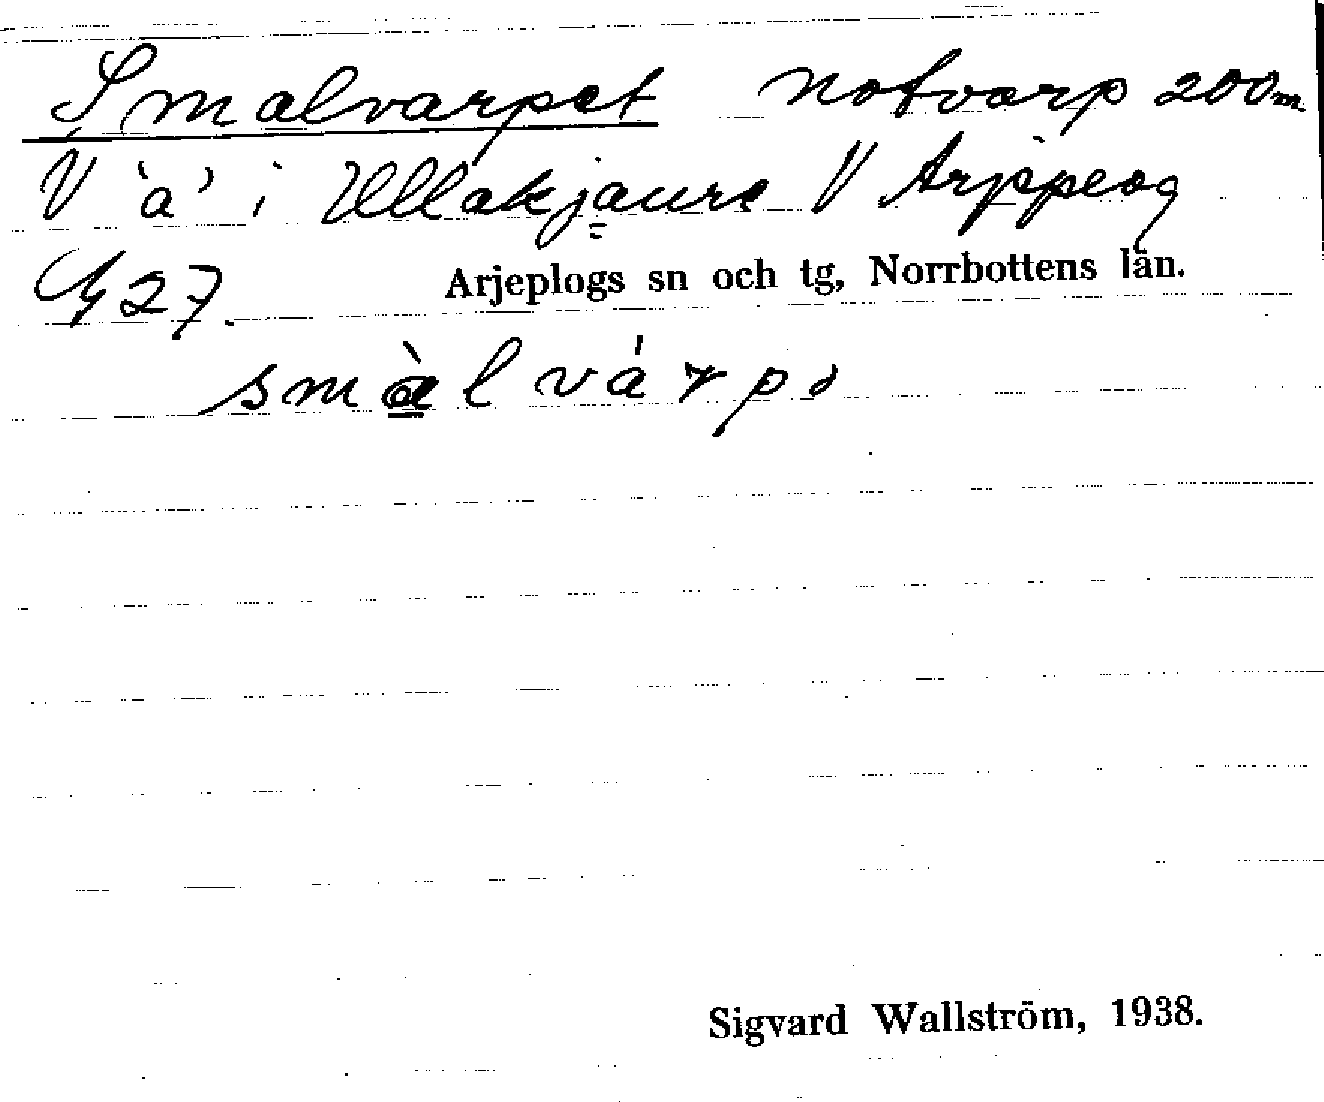 Smalvarpet notvarp 200m
V 'a' i Ullakjaure V Arjepeog
G 27.
Arjeplogs sn och tg, Norrbottens län.
smàl várpə
Sigvard Wallström, 1938.